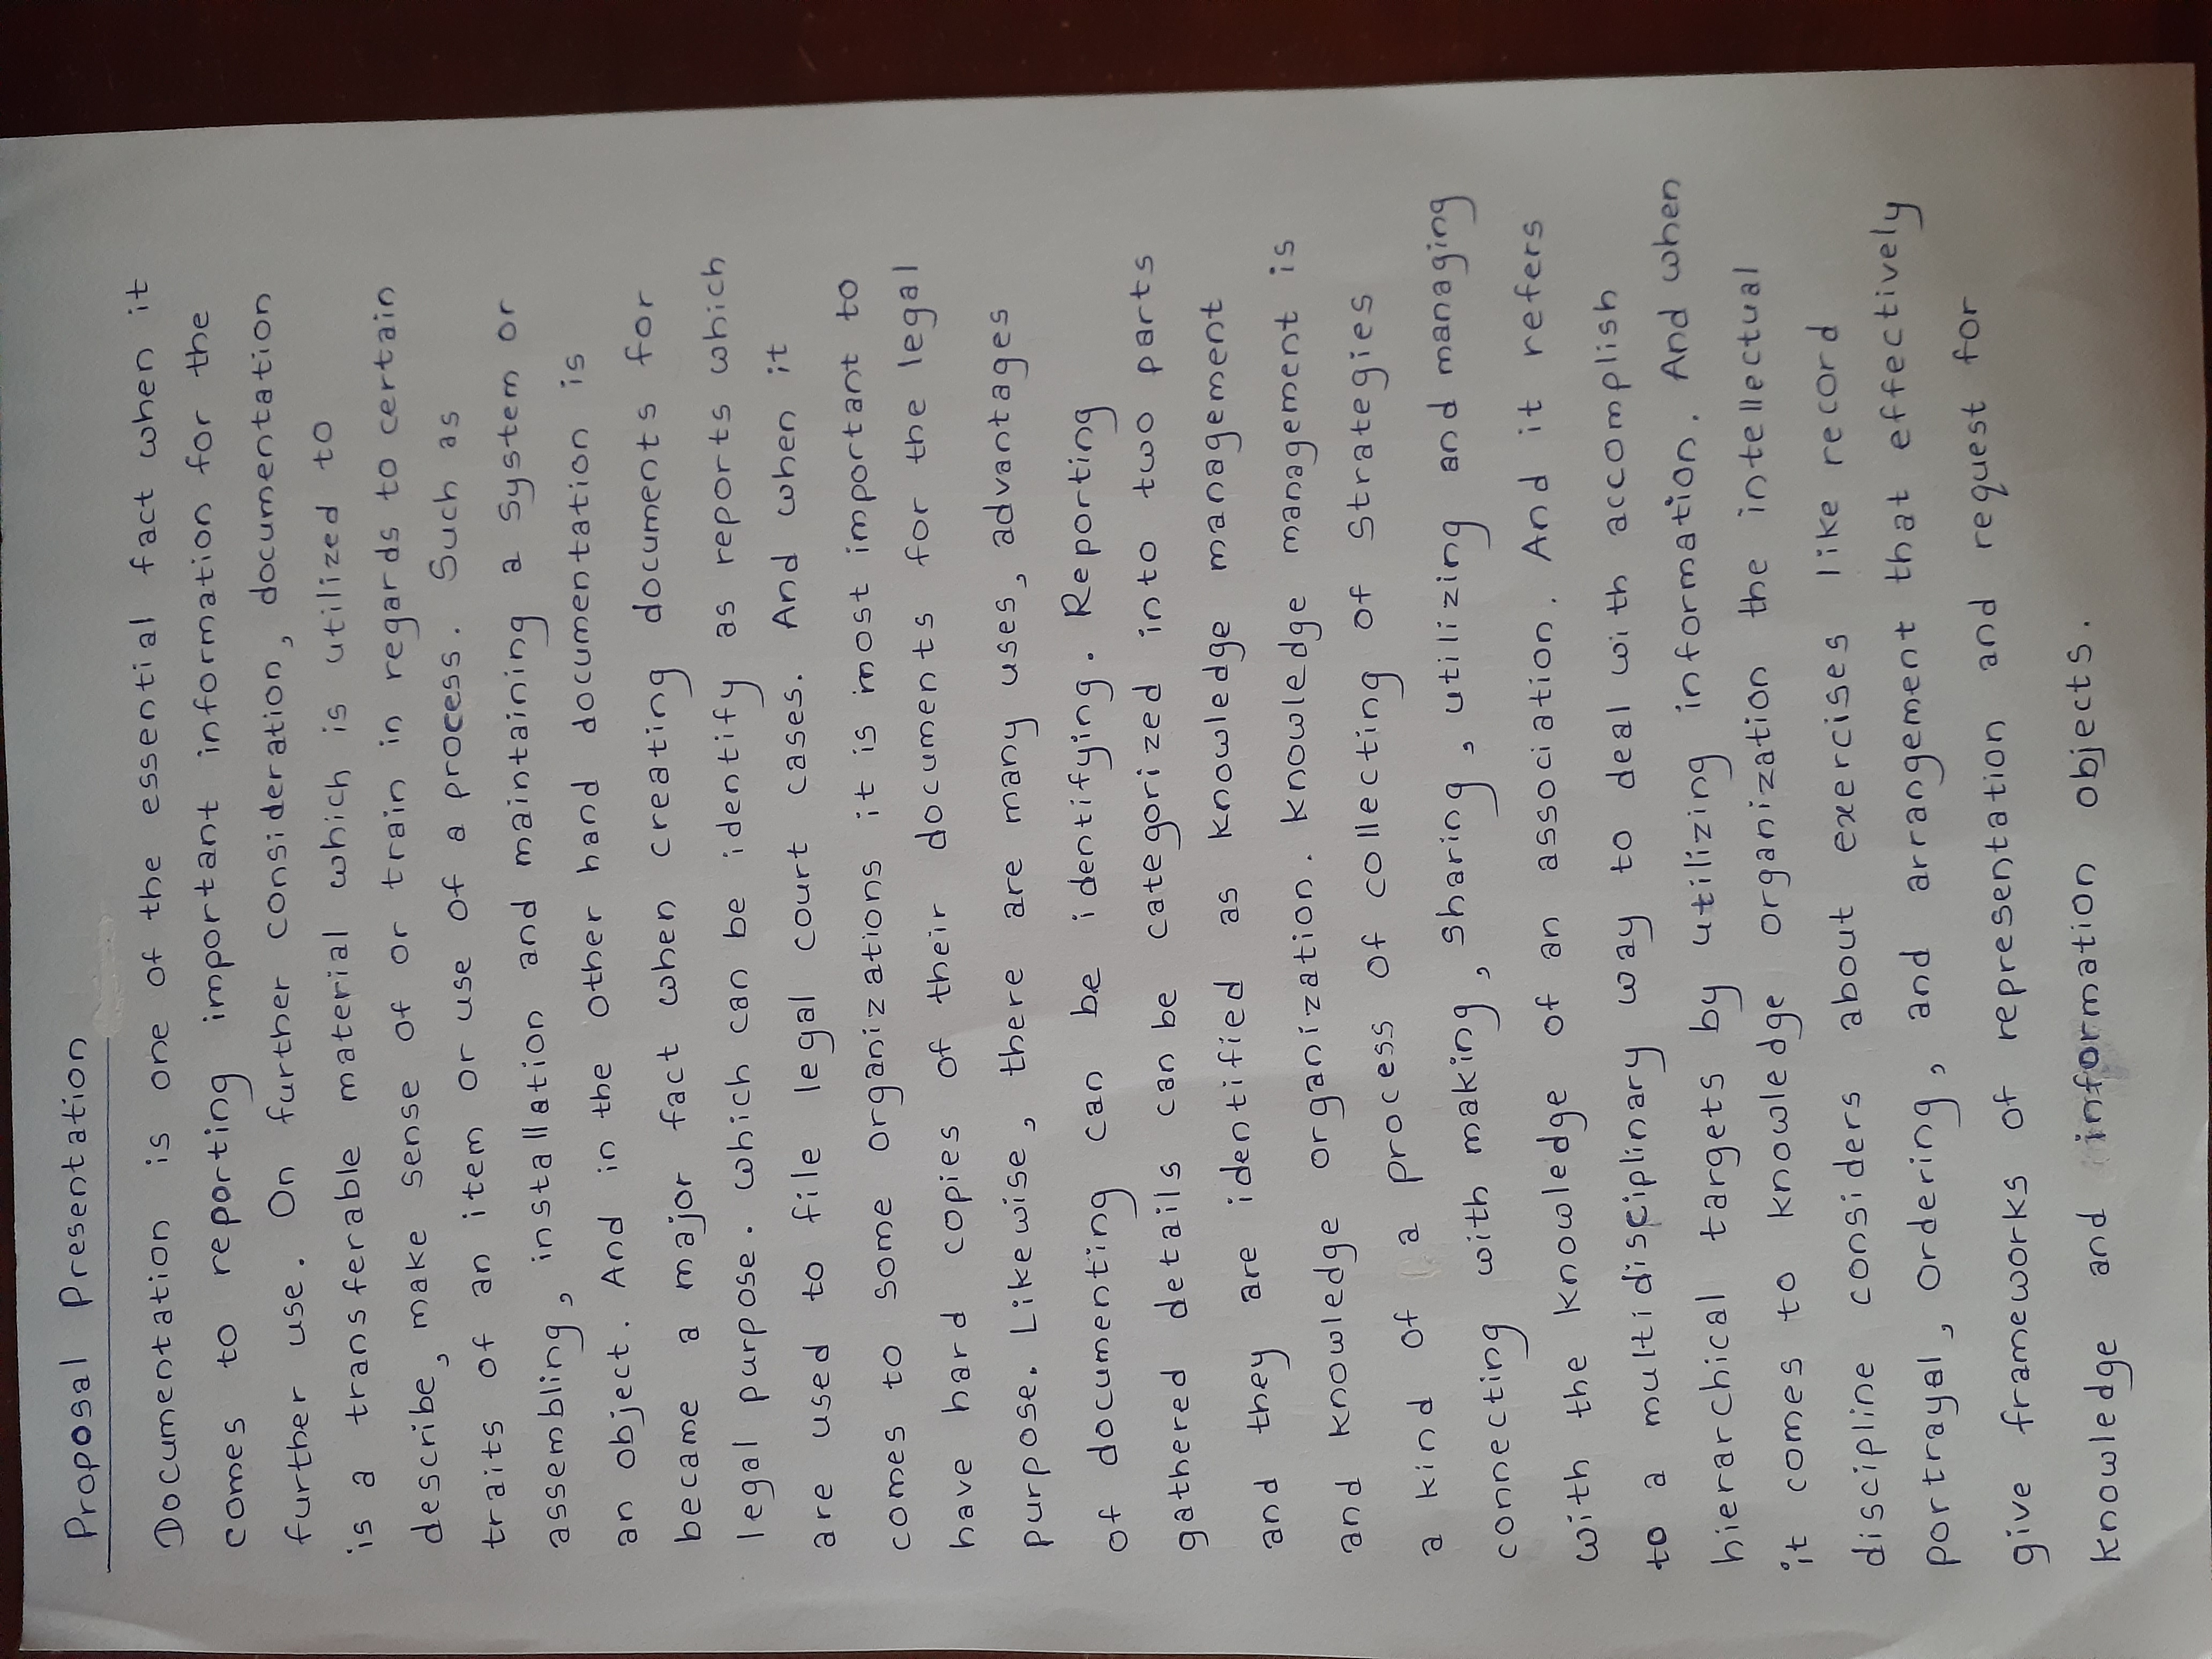 Proposal Presentation
Documentation is one of the essential fact when it
comes to reporting important information for the
further use. On further consideration, documentation
is a transferable material which is utilized to
describe, make sense of or train in regards to certain
traits of an item or use of a process. Such as
assembling, installation and maintaining a system or
an object. And in the other hand documentation is
became a major fact when creating documents for
legal purpose. which can be identify as reports which
are used to file legal court cases. And when it
comes to some organizations it is most important to
have hard copies of their documents for the legal
purpose. Likewise, there are many uses, advantages
of documenting can be identifying. Reporting
gathered details can be categorized into two parts
and they are identified as knowledge management
and knowledge organization. knowledge management is
a kind of a process of collecting of strategies
connecting with making, sharing, utilizing and managing
with the knowledge of an association. And it refers
to a multidisciplinary way to deal with accomplish
hierarchical targets by utilizing information. And when
it comes to knowledge organization the intellectual
discipline considers about exercises like record
portrayal, ordering, and arrangement that effectively
give frameworks of representation and request for
knowledge and information objects.